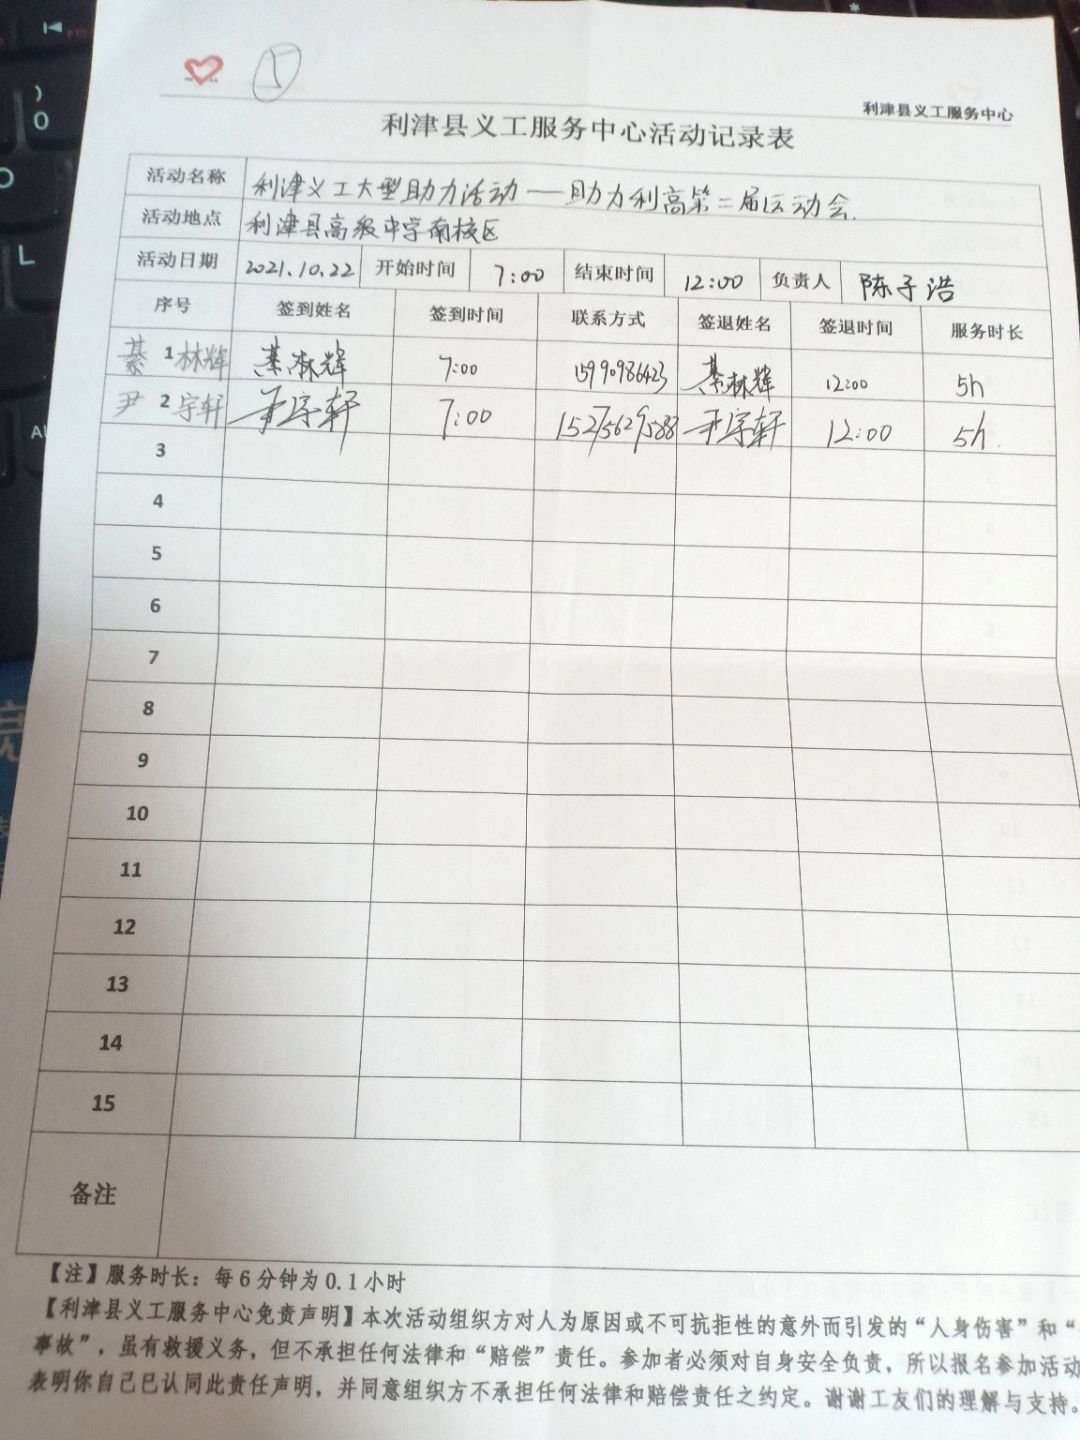 5
利津县义工服务中心
利津县义工服务中心活动记录表
活动名称 利津义工大型助力活动——助力利高第二届运动会.
活动地点 利津县高级中学南校区
活动日期 2021.10.22 开始时间 7:00 结束时间 12:00 负责人 陈子浩
序号 签到姓名 签到时间 联系方式 签退姓名 签退时间 服务时长
綦林辉 1 綦林辉 7:00 15990986423 綦林辉 12:00 5h
尹宇轩 2 尹宇轩 7:00 15275629588 尹宇轩 12:00 5h.
3
4
5
6
7
8
9
10
11
12
13
14
15
备注
【注】服务时长：每6分钟为0.1小时
【利津县义工服务中心免责声明】本次活动组织方对人为原因或不可抗拒性的意外而引发的“人身伤害”和“
事故”，虽有救援义务，但不承担任何法律和“赔偿”责任。参加者必须对自身安全负责，所以报名参加活动
表明你自己已认同此责任声明，并同意组织方不承担任何法律和赔偿责任之约定。谢谢工友们的理解与支持。